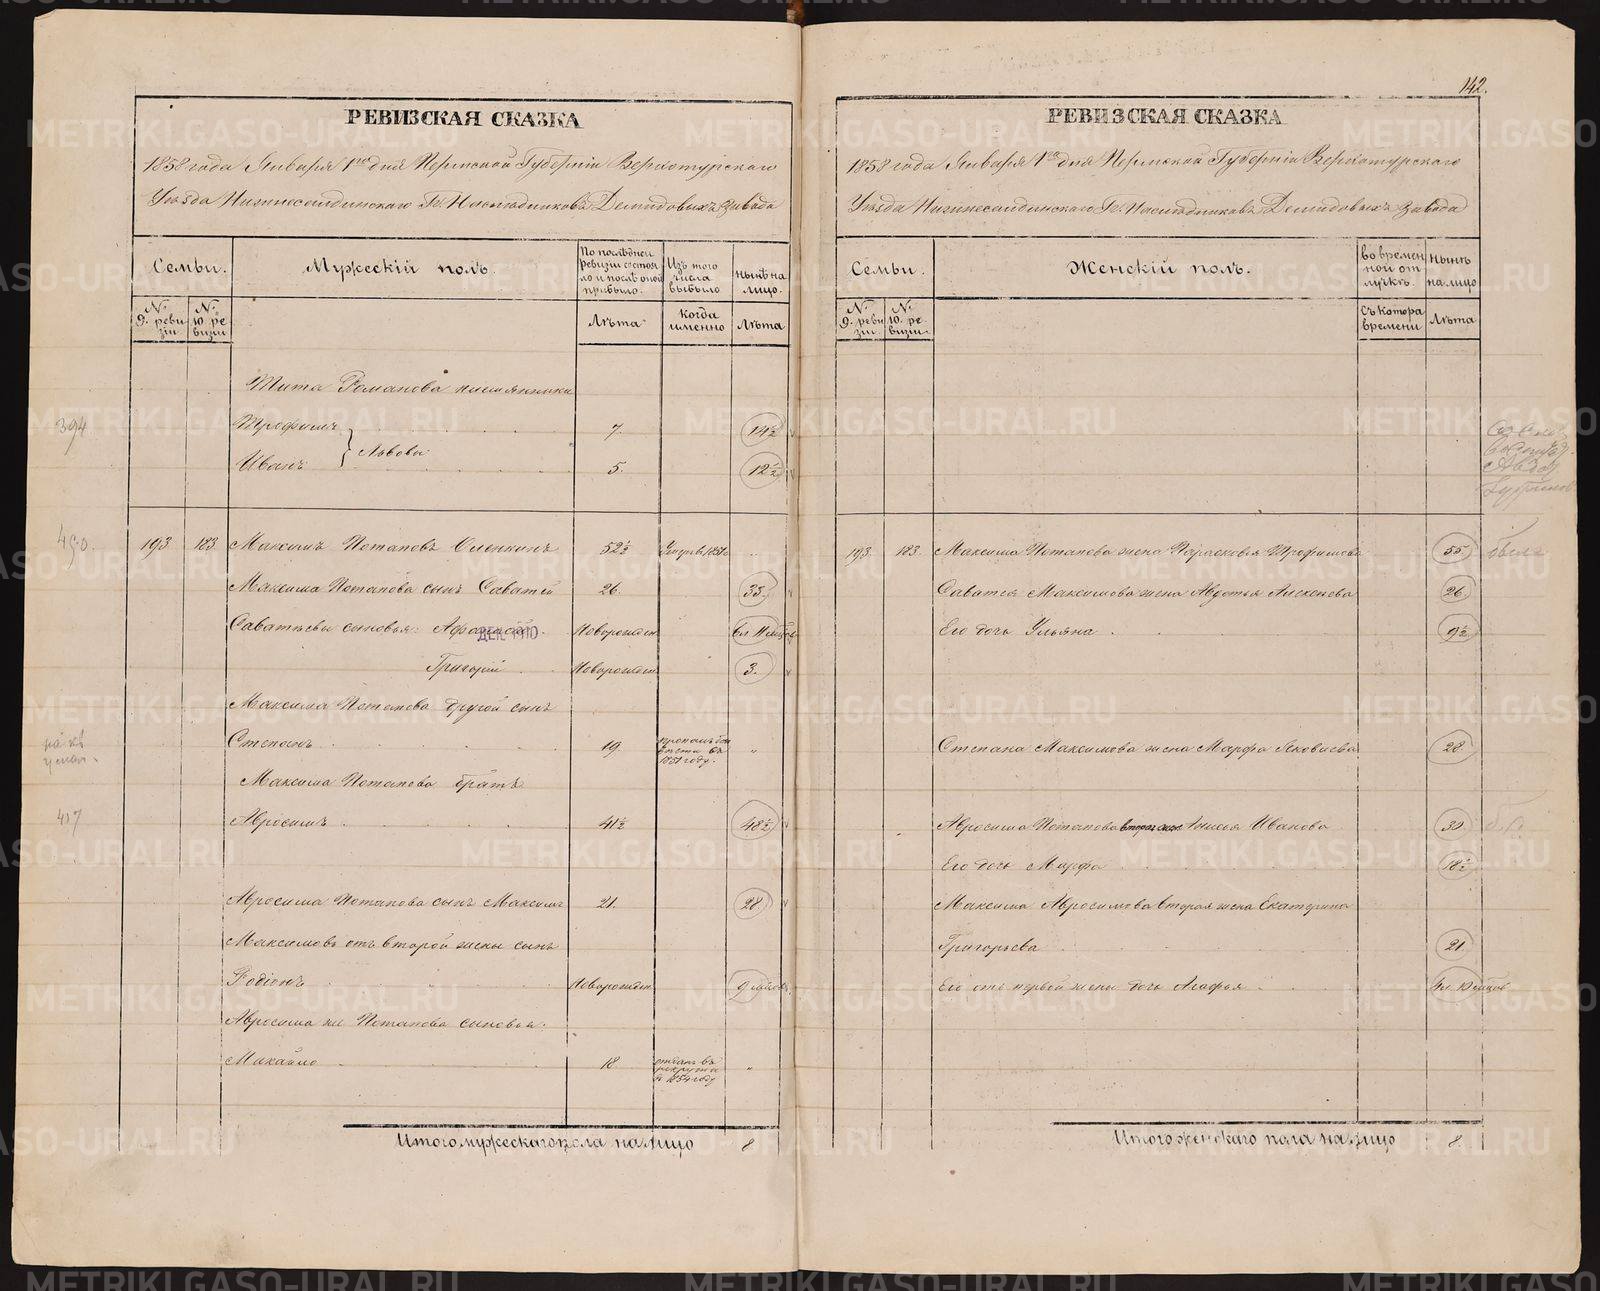 РЕВИЗСКАЯ СКАЗКА
1858 года Января 1го дня Пермской Губерніи Верхотурскаго
Уѣзда Нижнесалдинскаго Гг. Наслѣдниковъ Демидовыхъ Завода
Семьи.
Мужескій полъ.
По послѣдней ревизіи состояло и послѣ оной прибыло.
Изъ того числа выбыло
нынѣ на лицо.
№ 9. ревизіи
№ 10. ревизіи
Лѣта
Когда именно
Лѣта
Тита Романова племянники
394
Трофимъ 7. 14½
Львовы
Иванъ 5. 12½
450
193 183 Максимъ Потаповъ Оленкинъ 52½ 1851
Максима Потапова сынъ Саватей 26. 33.
Саватѣевы сыновья: ДЕК 1910 Новорожден
Григорій Новорожден 3.
Максима Потапова другой сынъ
Степанъ 19 пропалъ безъ вѣсти въ 1851 году. "
Максима Потапова братъ
407
Авросимъ 41½ 48½
Авросима Потапова сынъ Максимъ 21. 28
Максимовъ отъ второй жены сынъ
Родіонъ Новорожден 9 мѣсяц.
Авросима же Потапова сыновья:
Михайло 18 отданъ въ рекруты въ 1854 году "
Итого мужескаго пола на лицо 8
142.
РЕВИЗСКАЯ СКАЗКА
1858 года Января 1го дня Пермской Губерніи Верхотурскаго
Уѣзда Нижнесалдинскаго Гг. Наслѣдниковъ Демидовыхъ Завода
Семьи.
Женскій полъ.
во временной отлучкѣ.
Нынѣ на лицо
№ 9. ревизіи.
№ 10. ревизіи.
Съ котора времени
Лѣта
193. 183. Максима Потапова жена Парасковья Трофимова 55
Саватея Максимова жена Авдотья Алексеева 26
Его дочь Ульяна 9½
Степана Максимова жена Марфа Яковлева 28
Авросима Потапова вторая жена Анисья Иванова 30
Его дочь Марфа 18½
Максима Авросимова вторая жена Екатерина
Григорьева 21
Его отъ первой жены дочь Агафья
Итого женскаго пола на лицо 8.
METRIKI.GASO-URAL.RU